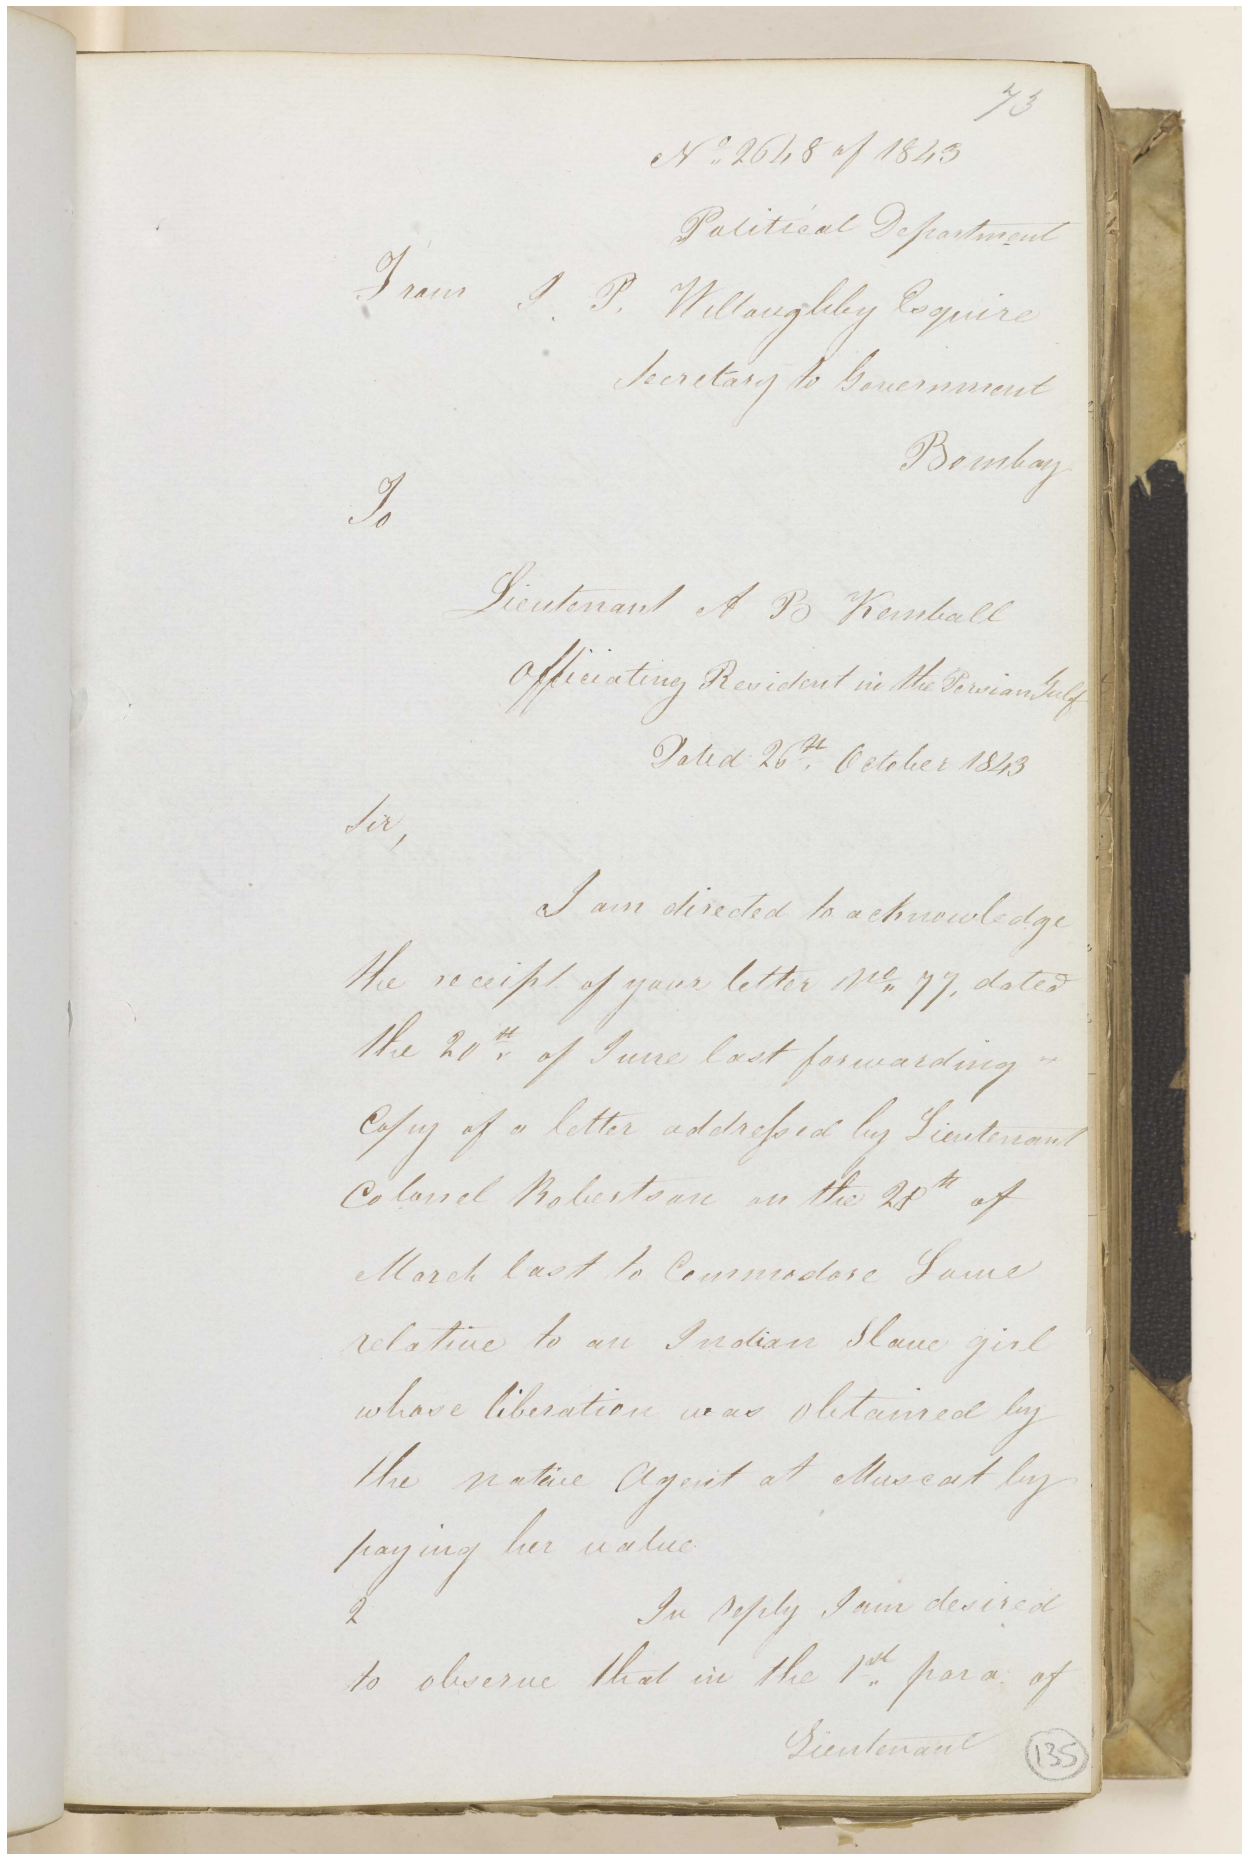 73
No. 2648 of 1843
Political Department
From J. P. Willoughby Esquire
Secretary to Government
Bombay
To
Lieutenant A B Kemball
Officiating Resident in the Persian Gulf
Dated 26th. October 1843
Sir,
I am directed to acknowledge
the receipt of your letter No. 77, dated
the 20th. of June last forwarding
Copy of a letter addressed by Lieutenant
Colonel Robertson on the th of
March last to Commodore Lowe
relative to an Indian Slave girl
whose liberation was obtained by
the native Agent at Muscat by
paying her value
2 In reply I am desired
to observe that in the 1st. para. of
Lieutenant
135